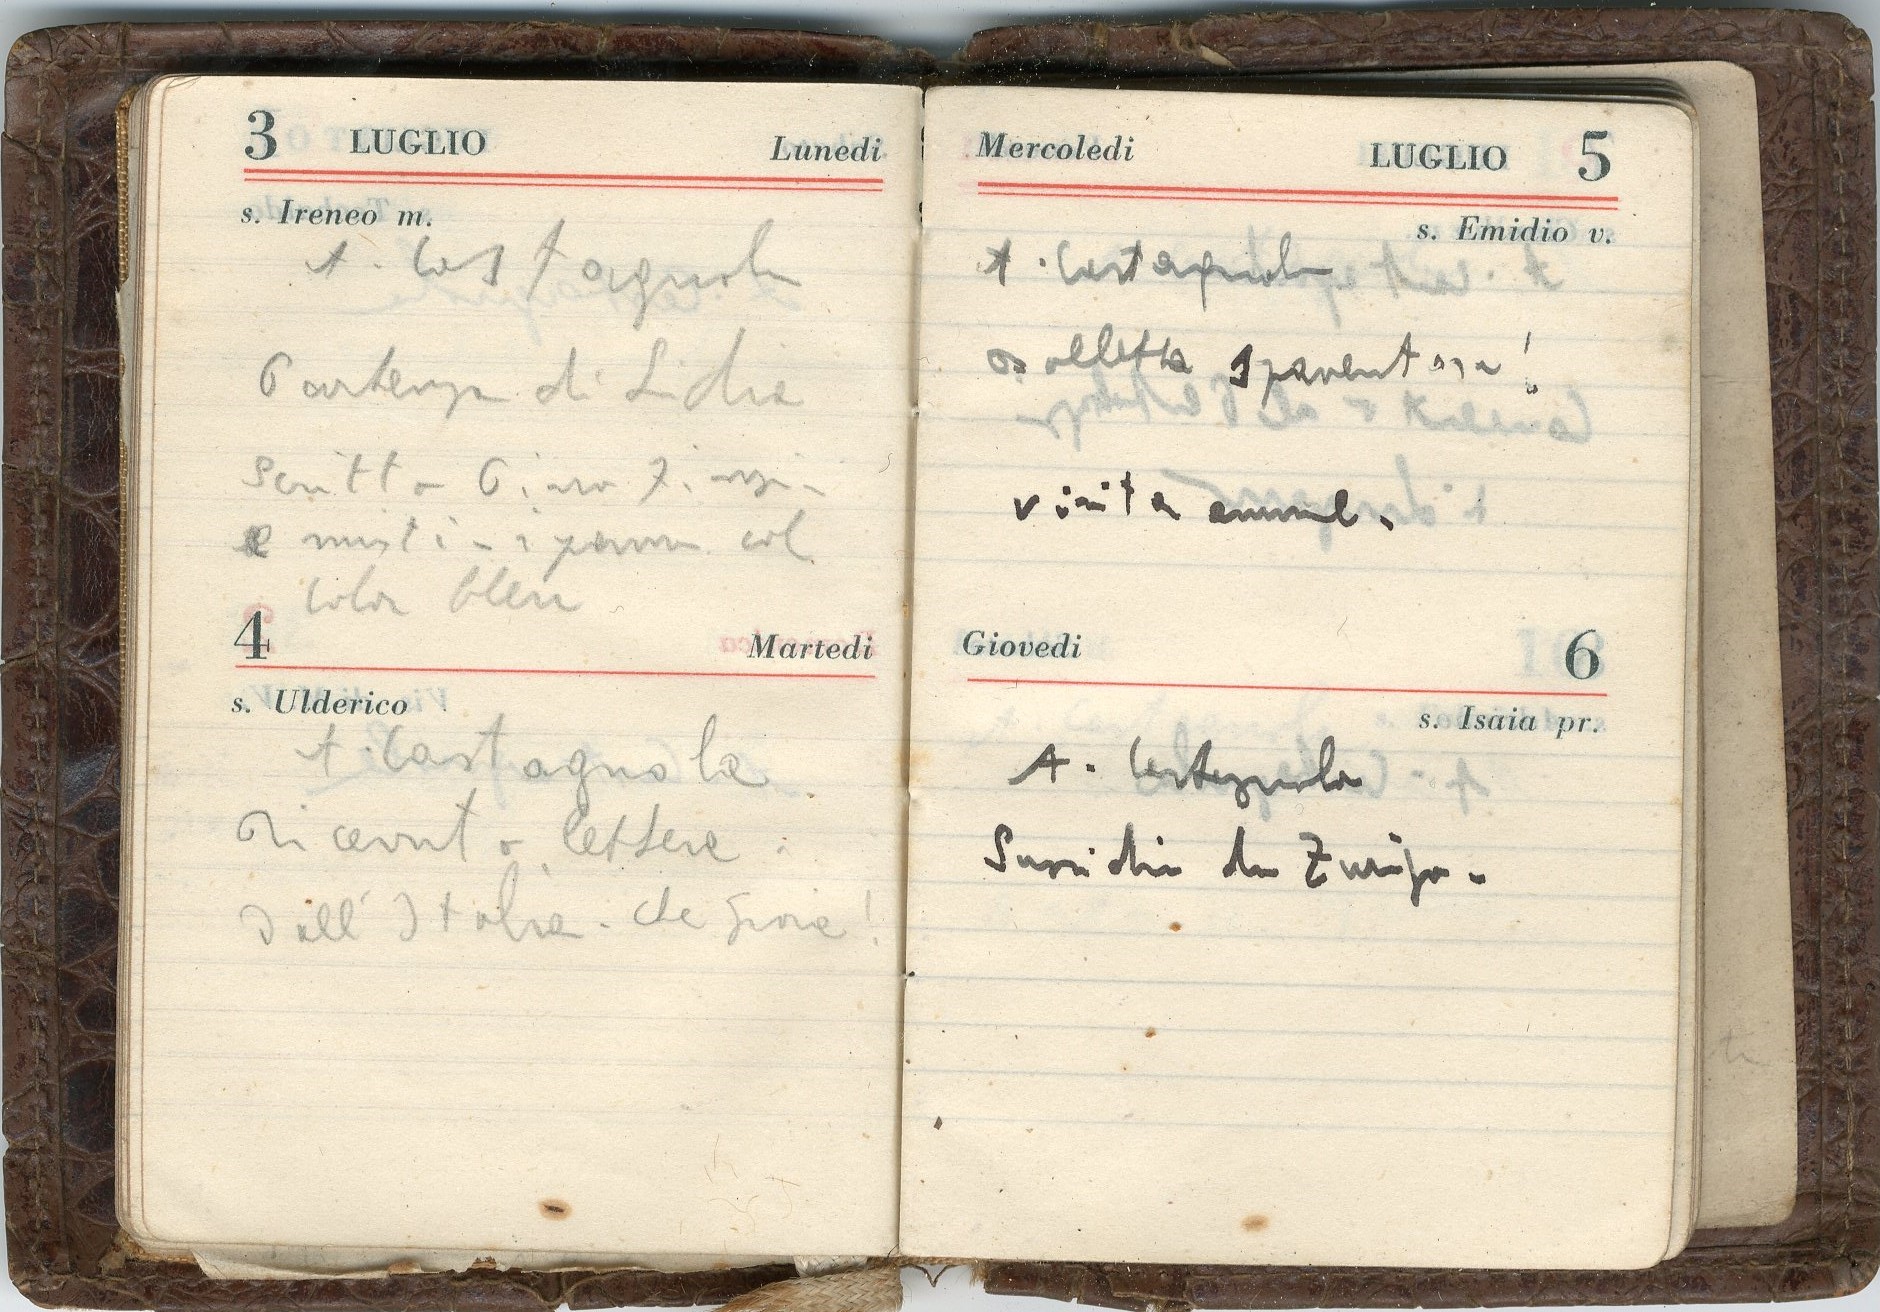 3 LUGLIO Lunedi
s. Ireneo m.
A. Castagnola
Partenza di Lidia
Scritto Piero
e misti - i col
color bleu
4 Martedi
s. Ulderico
A. Castagnola
Ricevuto lettere
dall' Italia. che gioia!
Mercoledi LUGLIO 5
s. Emidio v.
A. Castagnola
bolletta spaventosa!
visita
Giovedi 6
s. Isaia pr.
A. Castagnola
Sussidio da Zurigo.